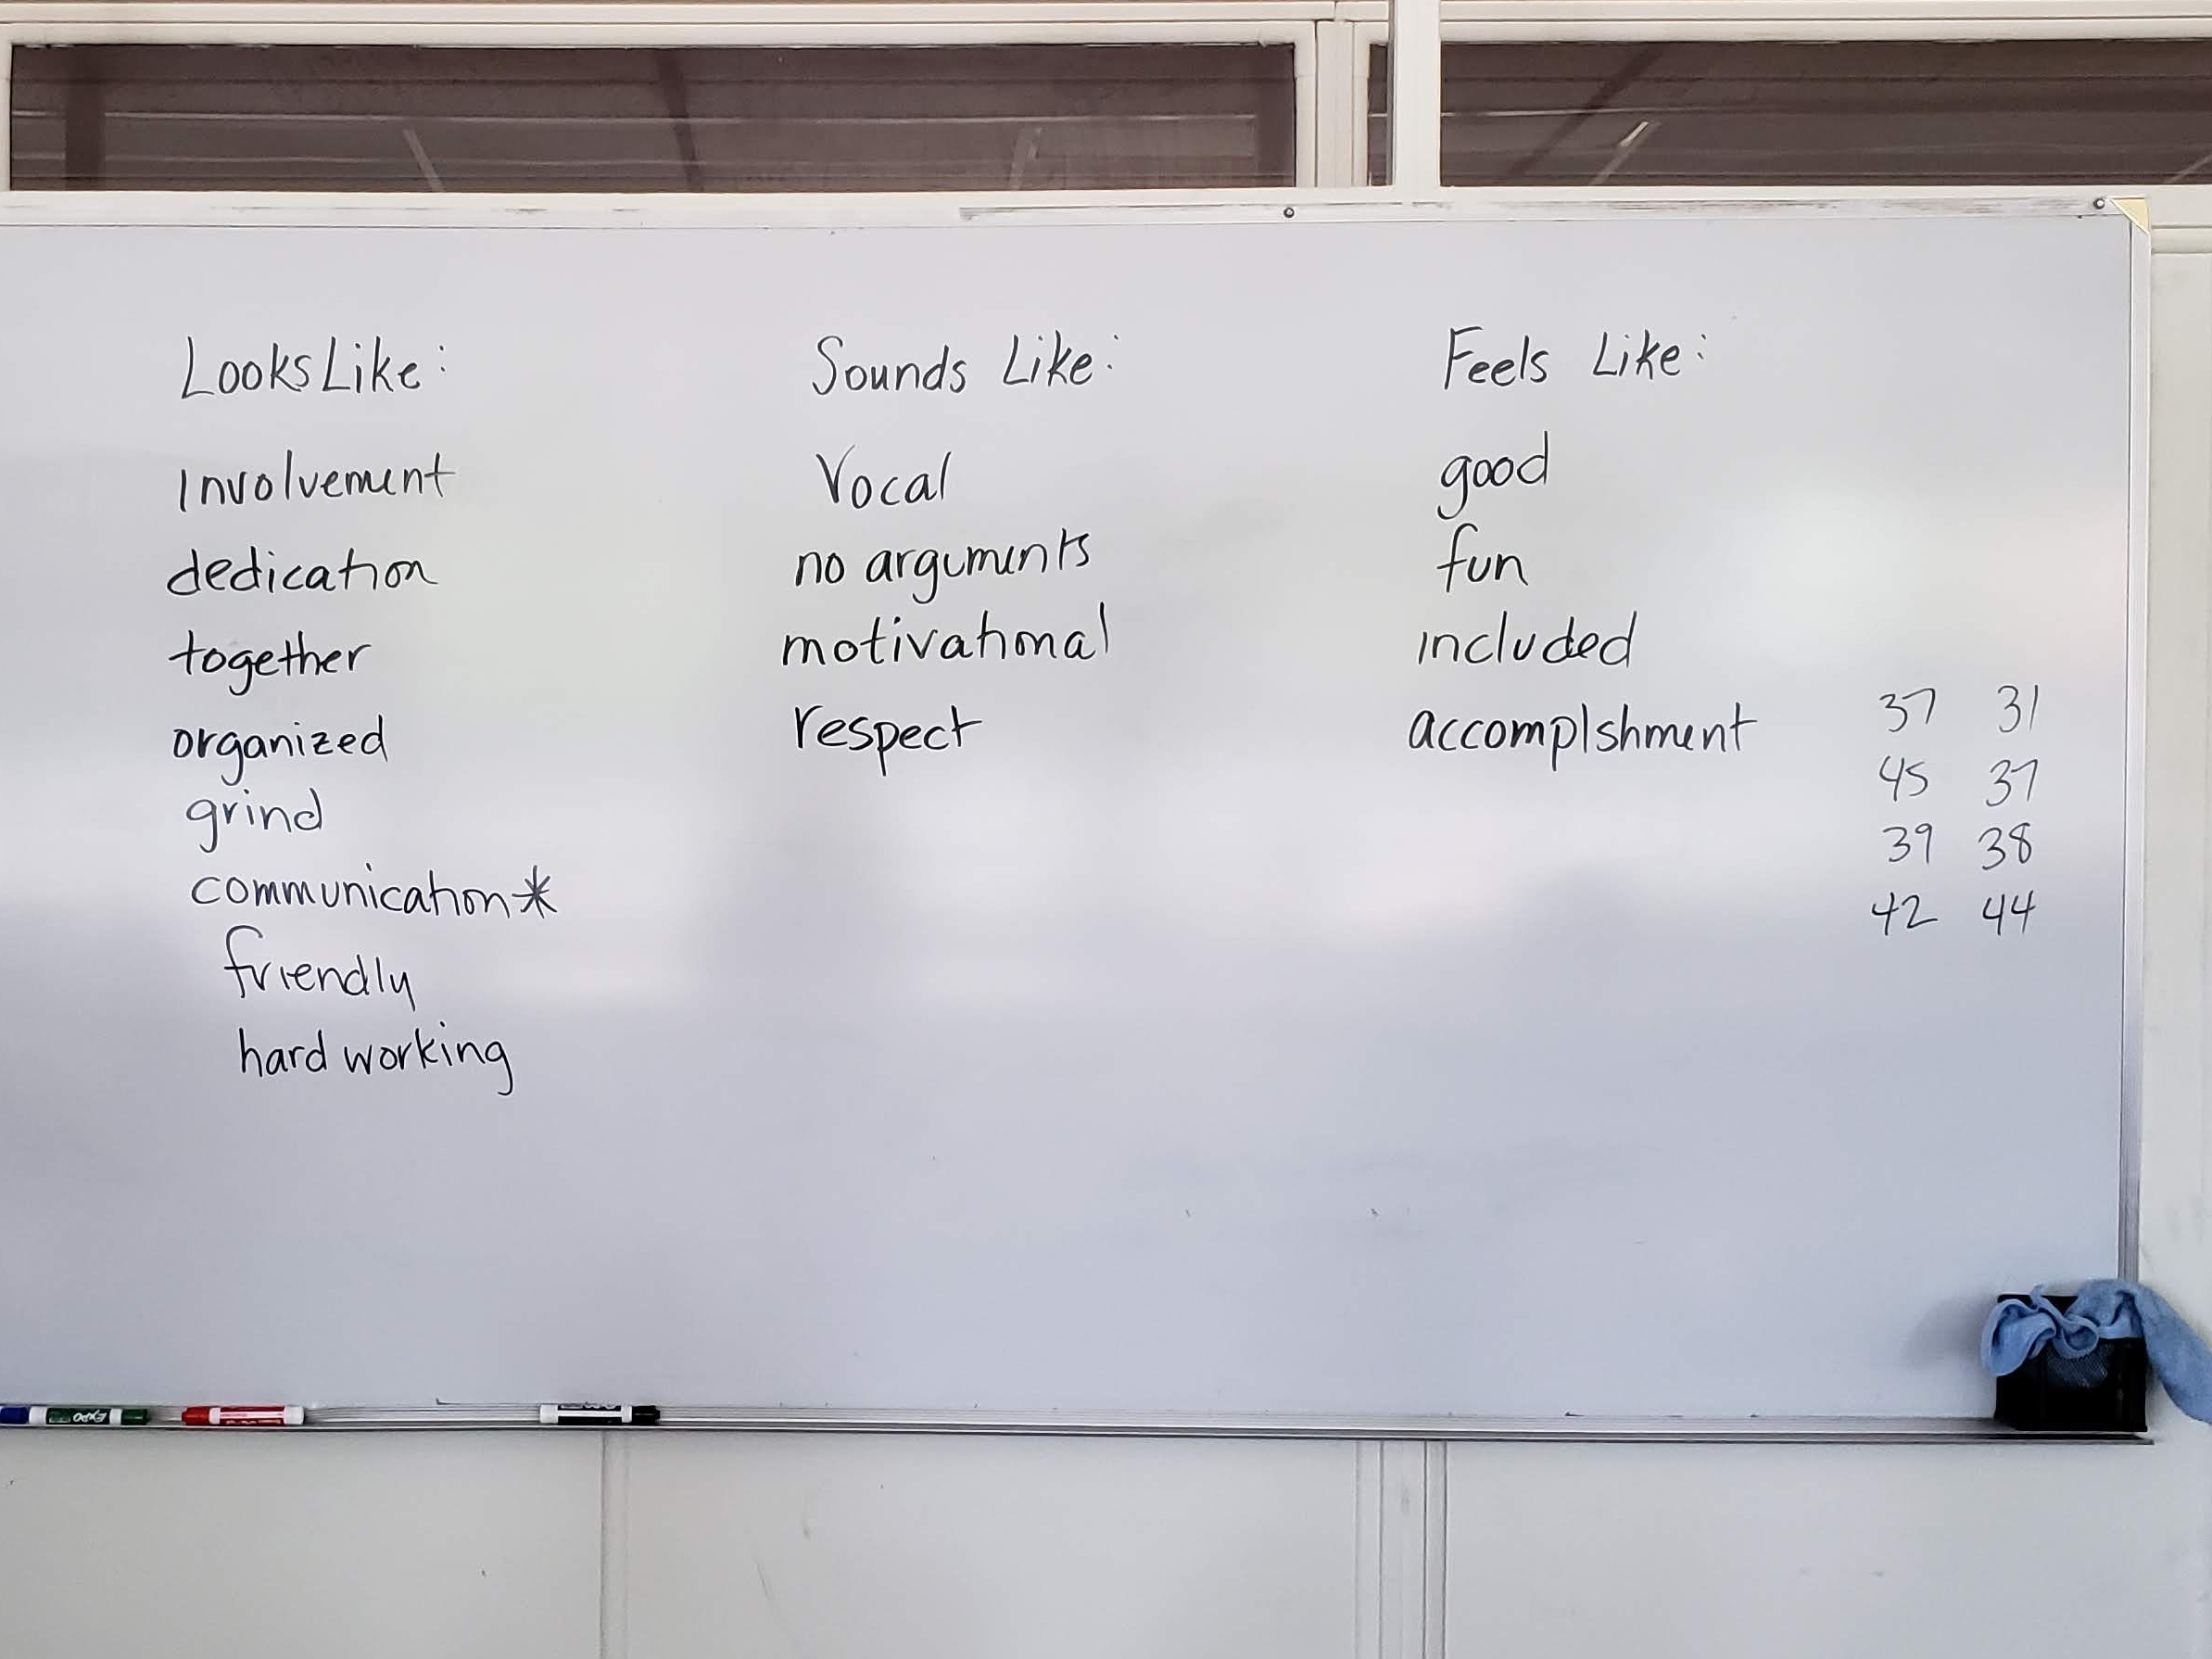 Looks Like:
Involvement
dedication
together
organized
grind
communication*
friendly
hard working
Sounds Like:
Vocal
no arguments
motivational
respect
Feels Like:
good
fun
included
accomplshment
37 31
45 37
39 38
42 44
EXPO